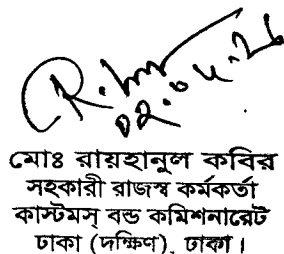 ০২.০৫.২৬
মোঃ রায়হানুল কবির
সহকারী রাজস্ব কর্মকর্তা
কাস্টমস্ বন্ড কমিশনারেট
ঢাকা (দক্ষিণ), ঢাকা।